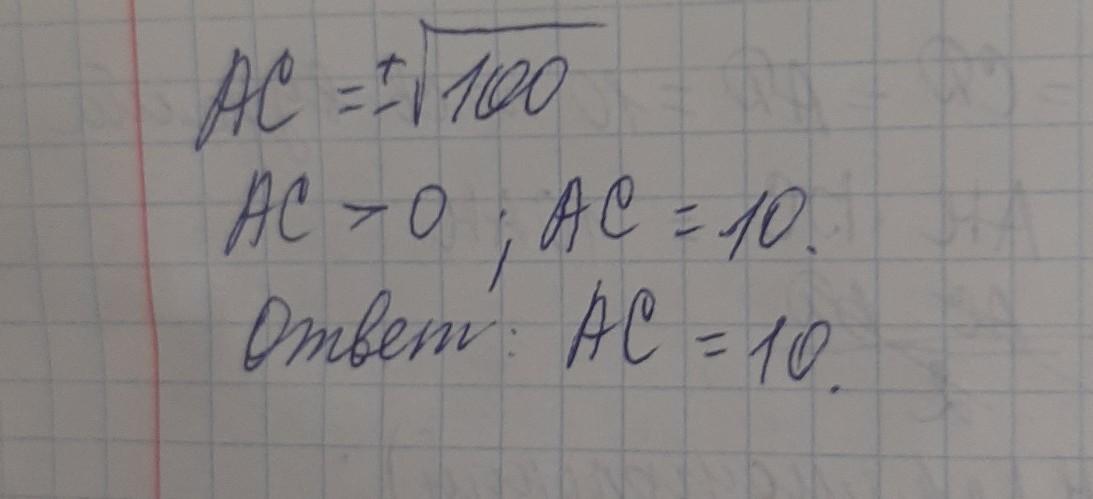 AC = ±√100
AC > 0 ; AC = 10.
Ответ: AC = 10.